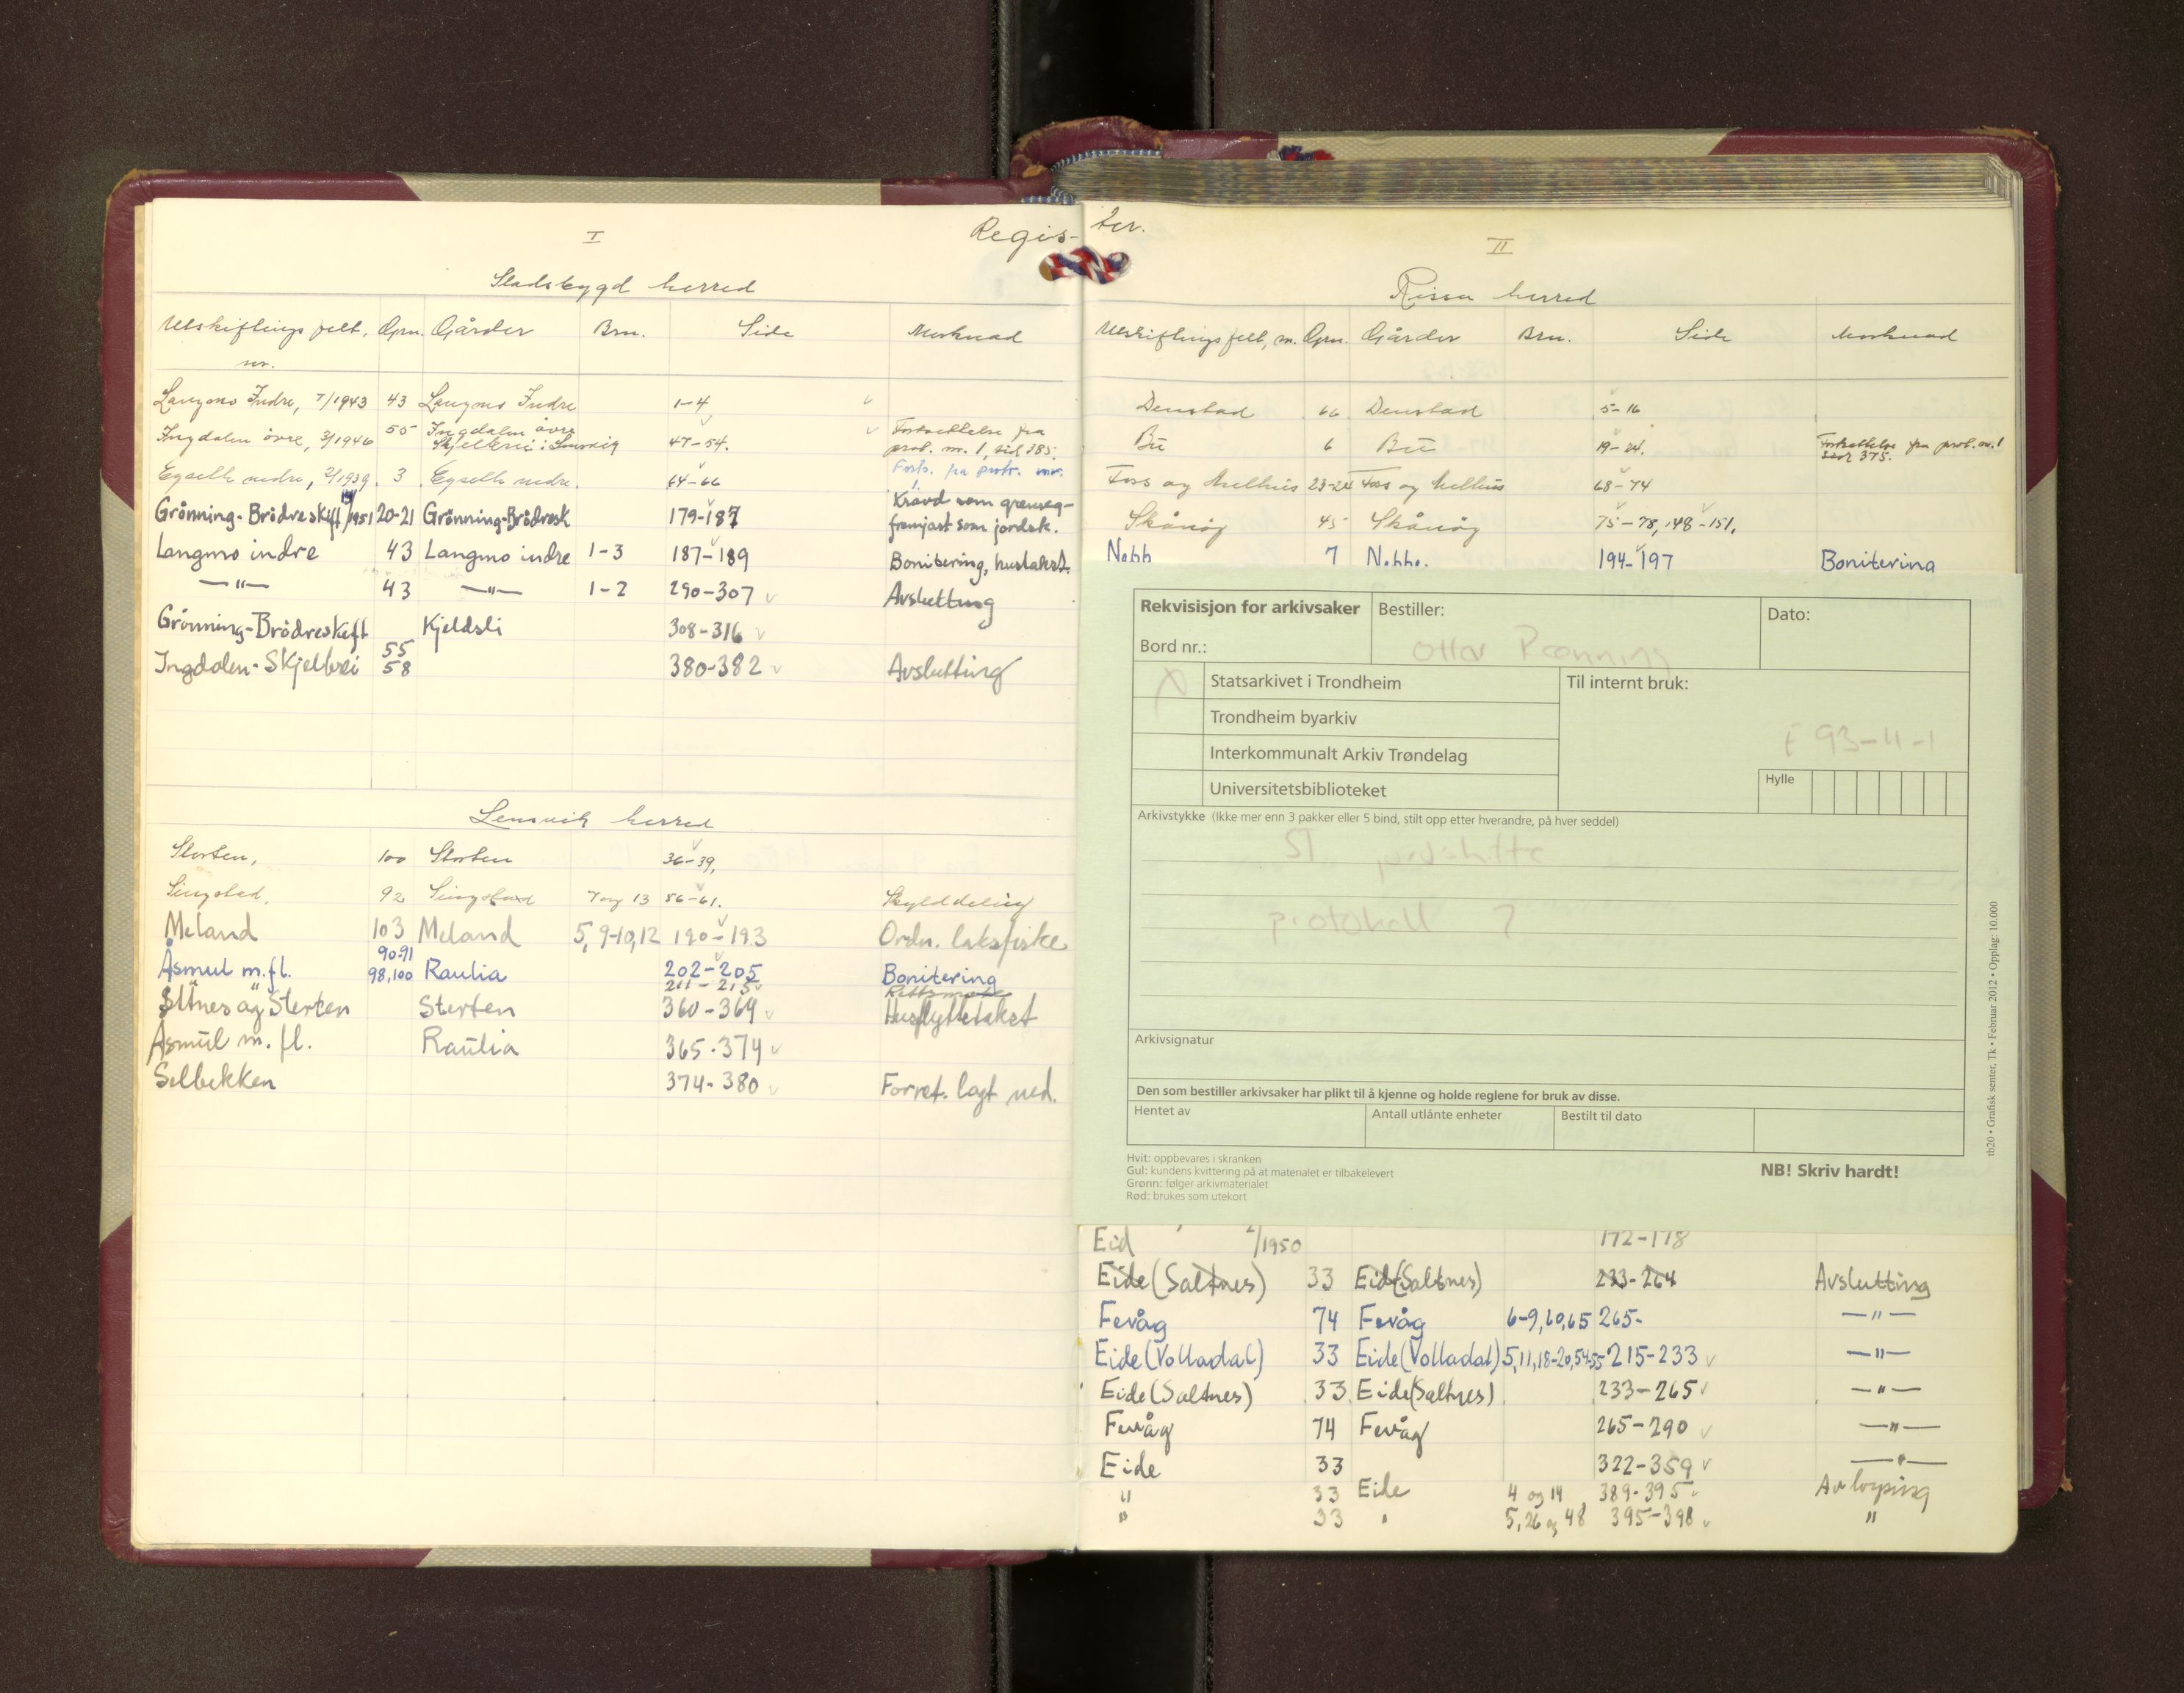 Regis-ter.
I
Stadsbygd herred
Utskiftings felt, nr. Gnr. Gårder Brn. Side Merknad
Langmo Indre, 7/1943 43 Langmo Indre 1-4
Ingdalen övre, 3/1946 55 Ingdalen övre Skjelbrei i Lensvik 47-54. Fortsettelse fra prot. nr. 1, sid 385.
nedre, 2/1939 3 nedre. 64-66 Forts. fra protr. nr.
Grönning-Brödreskift 1951 20-21 Grönning-Brödresk 179-187 Kravd som fremjast som jordsk.
Langmo indre 43 Langmo indre 1-3 187-189 Bonitering, hustakst.
—"— 43 —"— 1-2 290-307 Avslutting
Grönning-Brödreskift Kjeldsli 308-316
Ingdalen-Skjelbrei 55 58 380-382 Avslutting
Lensvik herred
Sterten, 100 Sterten 36-39,
Singstad, 92 Singstad 7 og 13 56-61. Skylddeling
Meland 103 Meland 5, 9-10, 12 190-193 Ordn. laksfiske
Åsmul m.fl. 90-91 98,100 Raulia 202-205 Bonitering
211-215 Rettsmøte
Selnes og Sterten Sterten 360-364 Husflyttetakst
Åsmul m. fl. Raulia 365-374
Selbekken 374-380 Forret. lagt ned.
II
Rissa herred
Utskiftingsfelt, nr. Gnr. Gårder Brn. Side Merknad
Denstad 66 Denstad 5-16
Bü 6 Bü 19-24. Fortsettelse fra prot. nr. 1 side 375.
Foss og Melhus 23-24 Foss og Melhus 68-74
Skånøy 45 Skånøy 75-78, 148-151.
Nebb 7 Nebbe. 194-197 Bonitering
Rekvisisjon for arkivsaker Bestiller: Dato:
Ottar Rønning
Bord nr.:
X Statsarkivet i Trondheim Til internt bruk:
Trondheim byarkiv
E 93-4-1
Interkommunalt Arkiv Trøndelag
Hylle
Universitetsbiblioteket
Arkivstykke (Ikke mer enn 3 pakker eller 5 bind, stilt opp etter hverandre, på hver seddel)
ST jordskifte
protokoll 7
Arkivsignatur
Den som bestiller arkivsaker har plikt til å kjenne og holde reglene for bruk av disse.
Hentet av Antall utlånte enheter Bestilt til dato
Hvit: oppbevares i skranken
Gul: kundens kvittering på at materialet er tilbakelevert
Grønn: følger arkivmaterialet
Rød: brukes som utekort
NB! Skriv hardt!
tb20 • Grafisk senter, Tk • Februar 2012 • Opplag: 10.000
Eid 2/1950 172-178
Eide (Saltnes) 33 Eide (Saltnes) 233-264 Avslutting
Fevåg 74 Fevåg 6-9, 60, 65 265- —"—
Eide (Volladal) 33 Eide (Volladal) 5, 11, 18-20, 54-55 215-233 —"—
Eide (Saltnes) 33 Eide (Saltnes) 233-265 —"—
Fevåg 74 Fevåg 265-290 —"—
Eide 33 322-359 —"—
" 33 Eide 4 og 14 389-395 Avløysing
" 33 " 5, 26 og 48 395-398 "